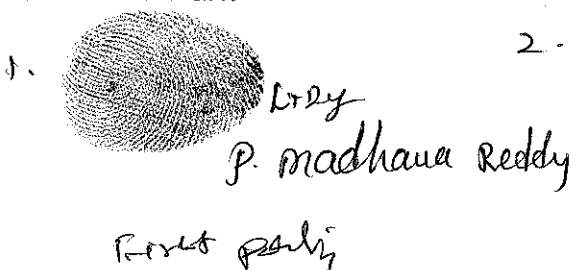 1.
2.
L+R of
P. Madhava Reddy
First party